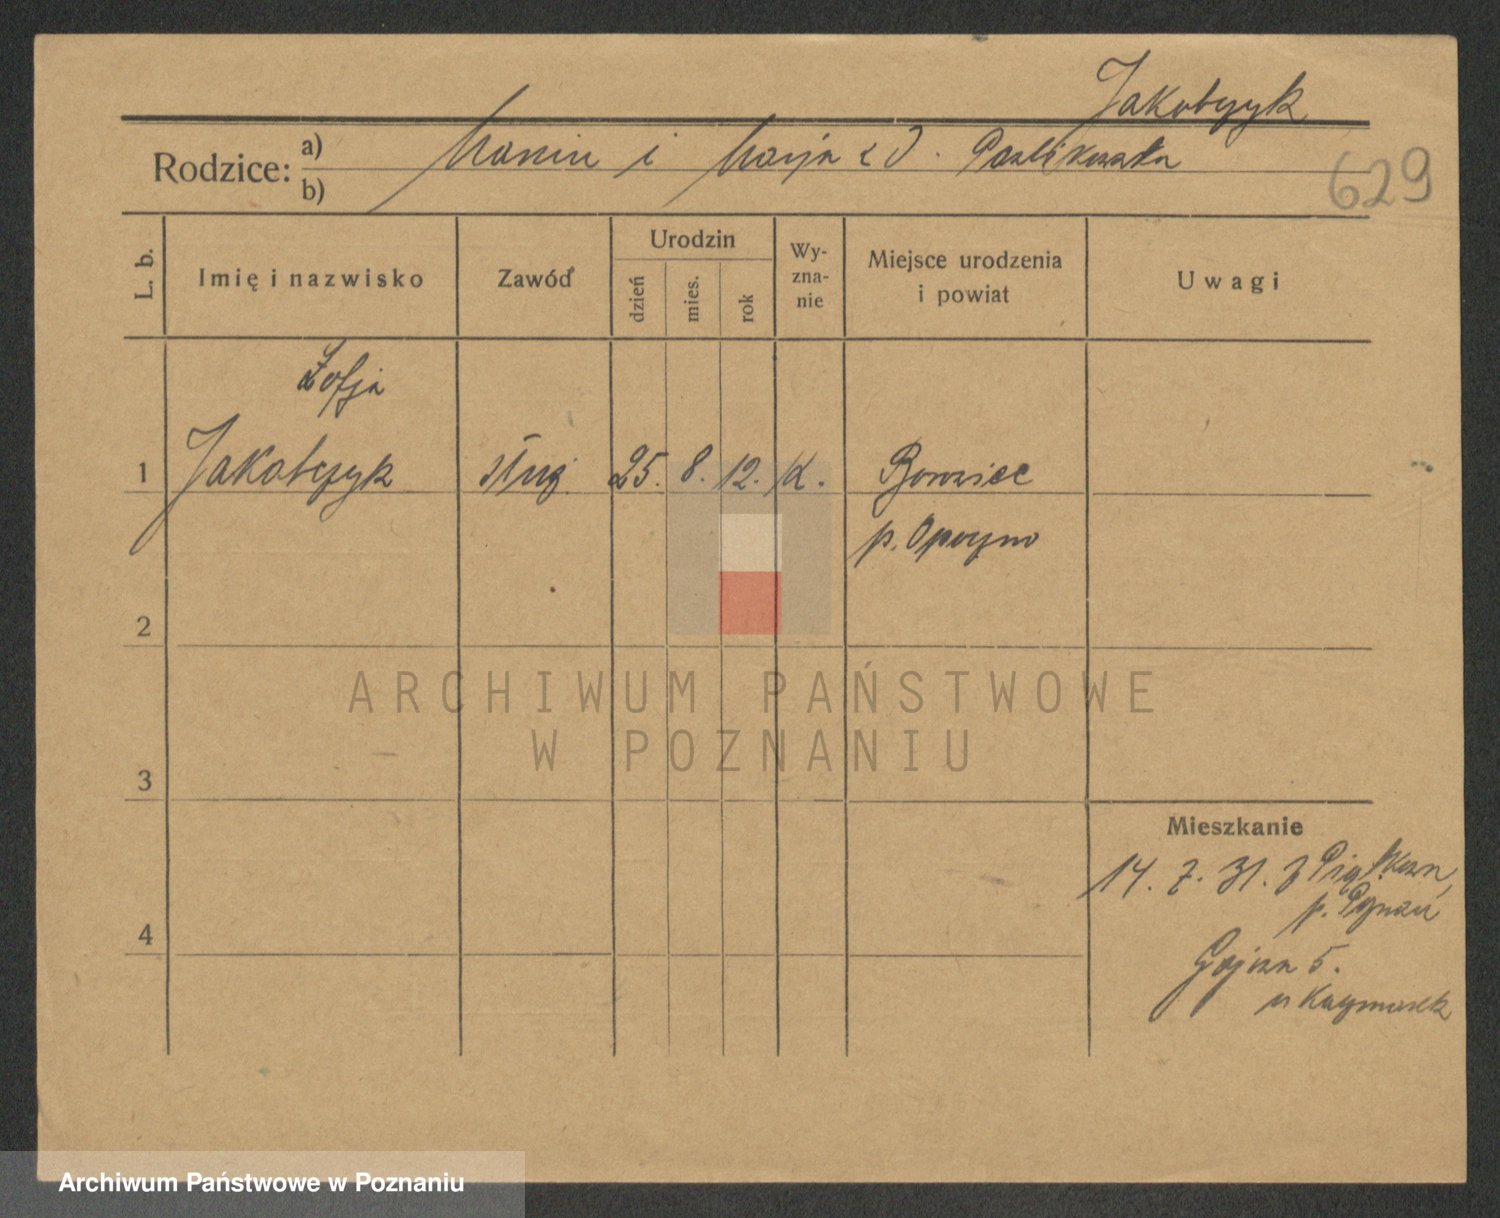 Jakobczyk
Rodzice: a) i Marja z d.
b)
629
L. b.
Imię i nazwisko
Zawód
Urodzin
dzień
mies.
rok
Wy-
zna-
nie
Miejsce urodzenia
i powiat
Uwagi
Zofja
1 Jakobczyk służ. 25. 8. 12. K. Borowiec
p. Opoczno
2
3
4
Mieszkanie
14. 7. 31. z Piątkowa,
p. Poznań
5.
u Kaczmarek
ARCHIWUM PAŃSTWOWE
W POZNANIU
Archiwum Państwowe w Poznaniu